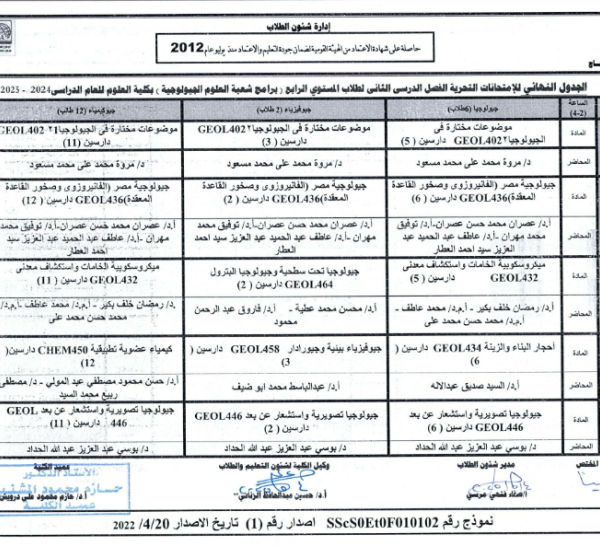 إدارة شئون الطلاب
حاصلة على شهادة الاعتماد من الهيئة القومية لضمان جودة التعليم والاعتماد منذ يوليو عام 2012
الجدول النهائي للإمتحانات التحرية الفصل الدرسى الثانى لطلاب المستوي الرابع ( برامج شعبة العلوم الجيولوجية ) بكلية العلوم للعام الدراسى 2024 - 2023
الساعة (2-4) جيولوجيا (6طلاب) جيوفيزياء (2 طلاب) جيوكيمياء (12 طالب)
المادة موضوعات مختارة فى الجيولوجيا٢ GEOL402 دارسين ( 5 ) موضوعات مختارة فى الجيولوجيا٢ GEOL402 دارسين ( 3 ) موضوعات مختارة فى الجيولوجيا٢ GEOL402 دارسين (11)
المحاضر د/ مروة محمد على محمد مسعود د/ مروة محمد على محمد مسعود د/ مروة محمد على محمد مسعود
المادة جيولوجية مصر (الفانيروزوى وصخور القاعدة المعقدة)GEOL436 دارسين ( 6 ) جيولوجية مصر (الفانيروزوى وصخور القاعدة المعقدة)GEOL436 دارسين ( 2 ) جيولوجية مصر (الفانيروزوى وصخور القاعدة المعقدة)GEOL436 دارسين ( 12 )
المحاضر أ.د/ عصران محمد حسن عصران-أ.د/ توفيق محمد مهران -أ.د/ عاطف عبد الحميد عبد العزيز سيد احمد العطار أ.د/ عصران محمد حسن عصران-أ.د/ توفيق محمد مهران -أ.د/ عاطف عبد الحميد عبد العزيز سيد احمد العطار أ.د/ عصران محمد حسن عصران-أ.د/ توفيق محمد مهران -أ.د/ عاطف عبد الحميد عبد العزيز سيد احمد العطار
المادة ميكروسكوبية الخامات واستكشاف معدنى GEOL432 دارسين ( 5 ) جيولوجيا تحت سطحية وجيولوجيا البترول GEOL464 دارسين ( 2 ) ميكروسكوبية الخامات واستكشاف معدنى GEOL432 دارسين ( 11 )
المحاضر أ.د/ رمضان خلف بكير - أ.م.د/ محمد عاطف - أ.م.د/ محمد حسن محمد على أ.د/ محسن محمد عطية - أ.د/ فاروق عبد الرحمن محمود أ.د/ رمضان خلف بكير - أ.م.د/ محمد عاطف -أ.م.د/ محمد حسن محمد على
المادة أحجار البناء والزينة GEOL434 دارسين ( 6 ) جيوفيزياء بيئية وجيورادار GEOL458 دارسين ( 3 ) كيمياء عضوية تطبيقية CHEM450 دارسين( 12 )
المحاضر أ.د/ السيد صديق عبدالاله أ.د/ عبدالباسط محمد ابو ضيف أ.د/ حسن محمود مصطفى عبد المولي - د/ مصطفى ربيع محمد السيد
المادة جيولوجيا تصويرية واستشعار عن بعد GEOL446 دارسين ( 6 ) جيولوجيا تصويرية واستشعار عن بعد GEOL446 دارسين ( 2 ) جيولوجيا تصويرية واستشعار عن بعد GEOL 446 دارسين ( 11 )
المحاضر د/ بوسي عبد العزيز عبد اللاه الحداد د/ بوسي عبد العزيز عبد اللاه الحداد د/ بوسي عبد العزيز عبد اللاه الحداد
المختص مدير شئون الطلاب وكيل الكلية لشئون التعليم والطلاب عميد الكلية
أ.د/ حازم محمود على درويش
الأستاذ الدكتور
حازم محمود
عميد الكلية
نموذج رقم SScS0Et0F010102 اصدار رقم (1) تاريخ الاصدار 4/20/ 2022